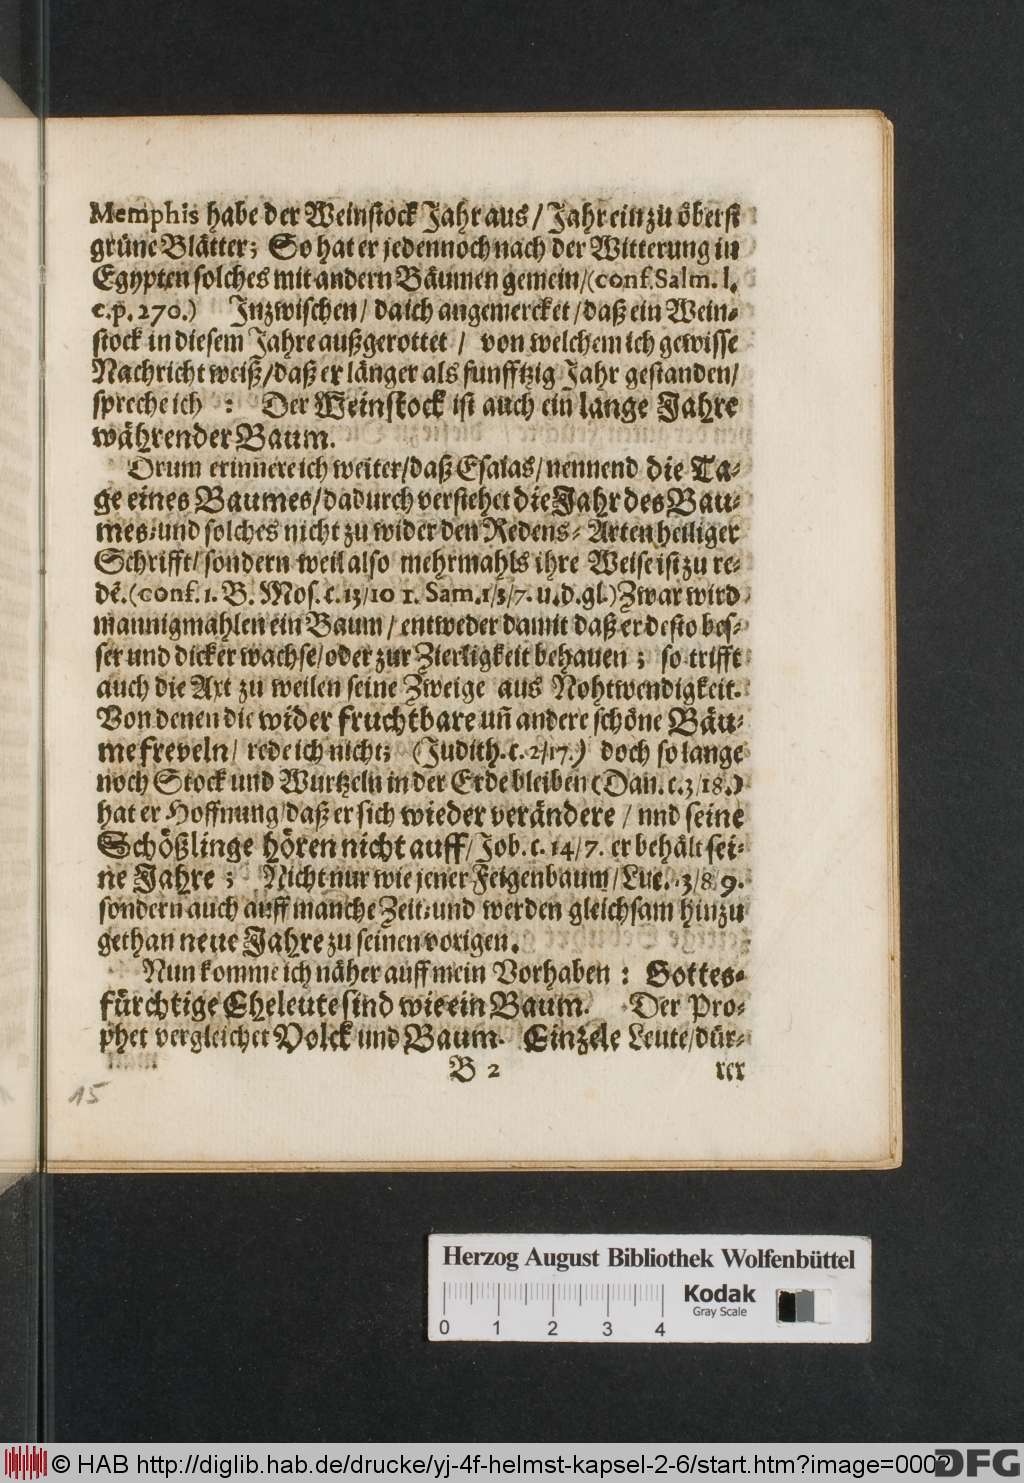 Memphis habe der Weinstock Jahr aus / Jahr ein zu öberst
grüne Blätter; So hat er jedennoch nach der Witterung in
Egypten solches mit andern Bäumen gemein / (conf. Salm. l.
c. p. 270.) Inzwischen / da ich angemercket / daß ein Wein-
stock in diesem Jahre außgerottet / von welchem ich gewisse
Nachricht weiß / daß er länger als funfftzig Jahr gestanden /
spreche ich : Der Weinstock ist auch ein lange Jahre
währender Baum.
Drum erinnere ich weiter / daß Esaias / nennend die Ta-
ge eines Baumes / dadurch verstehet die Jahr des Bau-
mes: und solches nicht zu wider den Redens- Arten heiliger
Schrifft / sondern weil also mehrmahls ihre Weise ist zu re-
dē. (conf. 1. B. Mos. c. 13 / 10 1. Sam. 1 / 3 / 7. u. d. gl.) Zwar wird
mannigmahlen ein Baum / entweder damit daß er desto bes-
ser und dicker wachse / oder zur Zierligkeit behauen ; so trifft
auch die Axt zu weilen seine Zweige aus Nohtwendigkeit.
Von denen die wider fruchtbare uñ andere schöne Bäu-
me freveln / rede ich nicht; (Judith. c. 2 / 17.) doch so lange
noch Stock und Wurtzeln in der Erde bleiben (Dan. c. 3 / 18.)
hat er Hoffnung / daß er sich wieder verändere / nnd seine
Schößlinge hören nicht auff / Job. c. 14 / 7. er behält sei-
ne Jahre ; Nicht nur wie jener Feigenbaum / Luc. 13 / 8 9.
sondern auch auff manche Zeit: und werden gleichsam hinzu
gethan neue Jahre zu seinen vorigen.
Nun komme ich näher auff mein Vorhaben : Gottes-
fürchtige Eheleute sind wie ein Baum. Der Pro-
phet vergleichet Volck und Baum. Einzele Leute / dür-
B 2 rer
15
Herzog August Bibliothek Wolfenbüttel
Kodak
Gray Scale
0 1 2 3 4
© HAB http://diglib.hab.de/drucke/yj-4f-helmst-kapsel-2-6/start.htm?image=0002
DFG